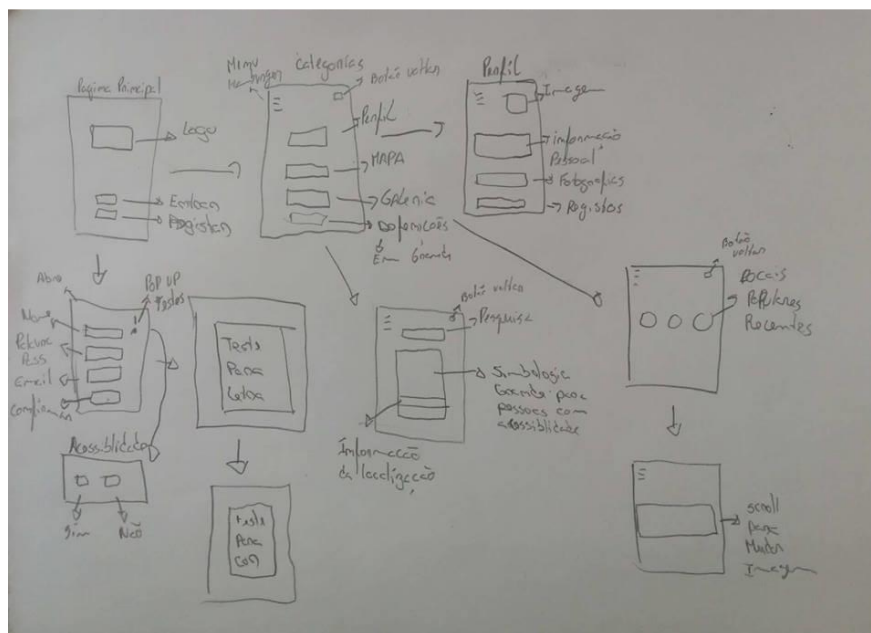 Pagina Principal
Logo
Entrar
Registar
Menu
Hamburger
Categorias
Botão voltar
Perfil
MAPA
Galeria
Definições
Em Grande
Perfil
Imagem
informação
Pessoal
Fotografias
Registos
POP UP
Testes
Nome
Pass
Email
Confirmar
Acessiblidade
Sim
Não
Teste
Para
Letra
teste
Para
Cor
Botão voltar
Pesquisa
Simbologia
Grande para
pessoas com
acessiblidade
Informação
da localização
Botão
voltar
Locais
Populares
Recentes
scroll
para
Mudar
Imagem